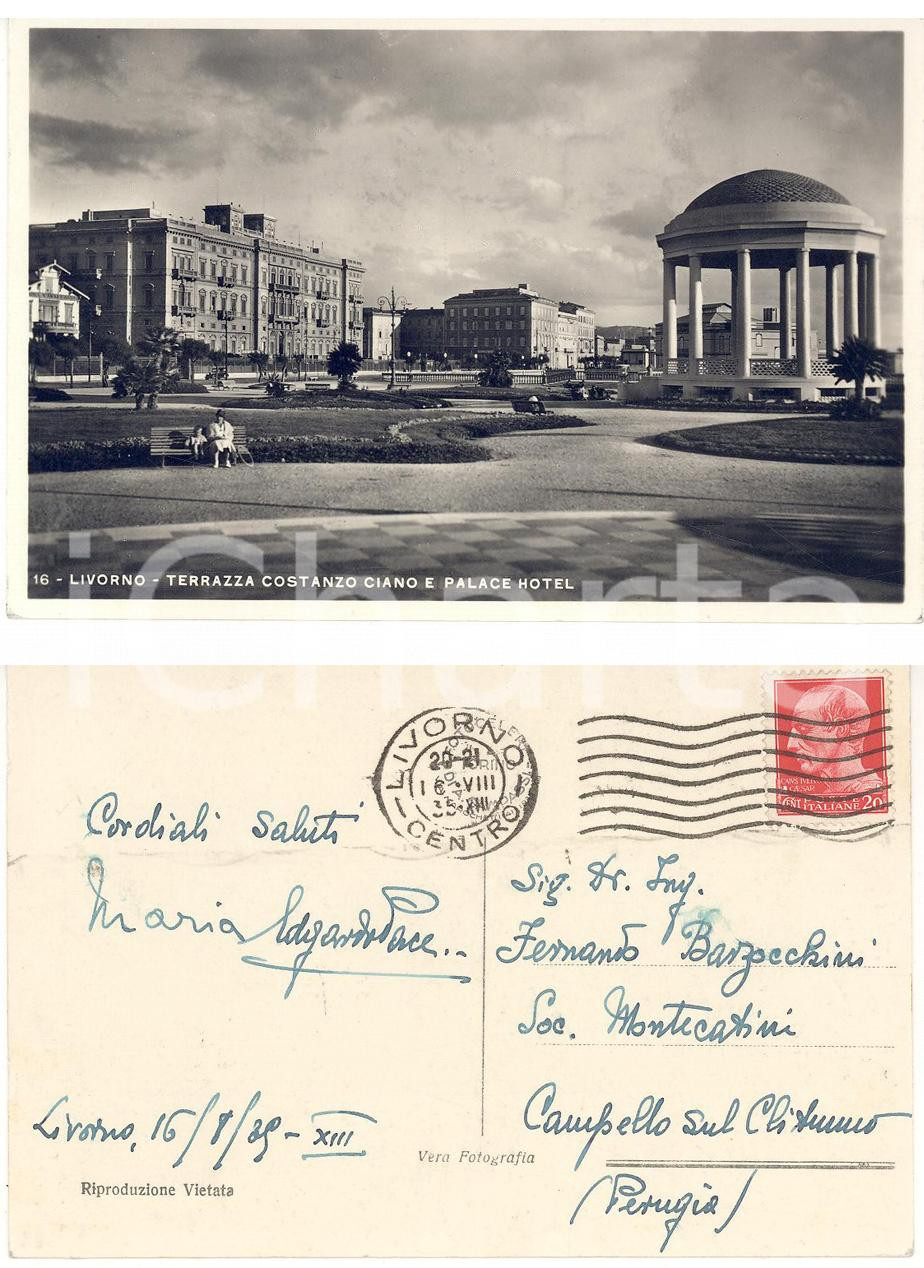 16 - LIVORNO - TERRAZZA COSTANZO CIANO E PALACE HOTEL
iCharta
LIVORNO
20-21
16 VIII
35 XIII
CENTRO
CENT ITALIANE 20
Cordiali saluti
Maria Edgardo Pace..
Livorno, 16/8/35 - XIII
Riproduzione Vietata
Vera Fotografia
Sig. Dr. Ing.
Fernando Barzecchini
Soc. Montecatini
Campello sul Clitunno
(Perugia)